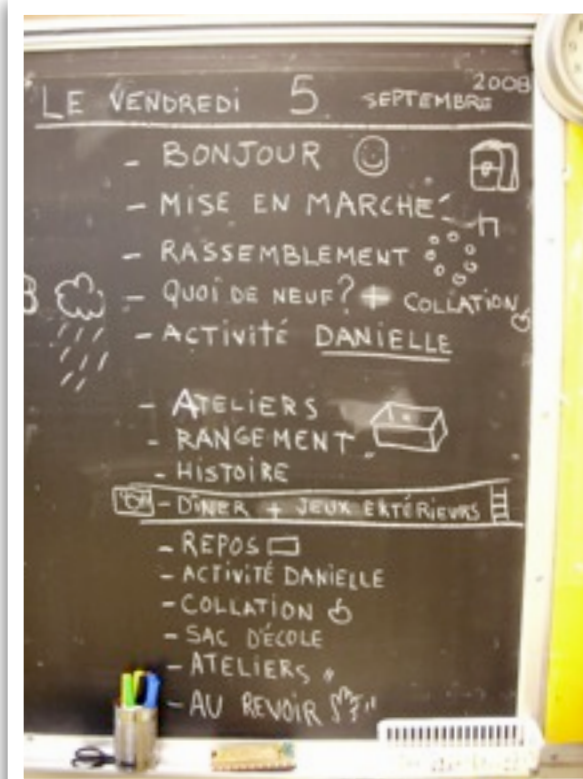 LE VENDREDI 5 SEPTEMBRE 2008
- BONJOUR
- MISE EN MARCHE
- RASSEMBLEMENT
- QUOI DE NEUF? + COLLATION
- ACTIVITÉ DANIELLE
- ATELIERS
- RANGEMENT
- HISTOIRE
- DÎNER + JEUX EXTÉRIEURS
- REPOS
- ACTIVITÉ DANIELLE
- COLLATION
- SAC D'ÉCOLE
- ATELIERS "
- AU REVOIR